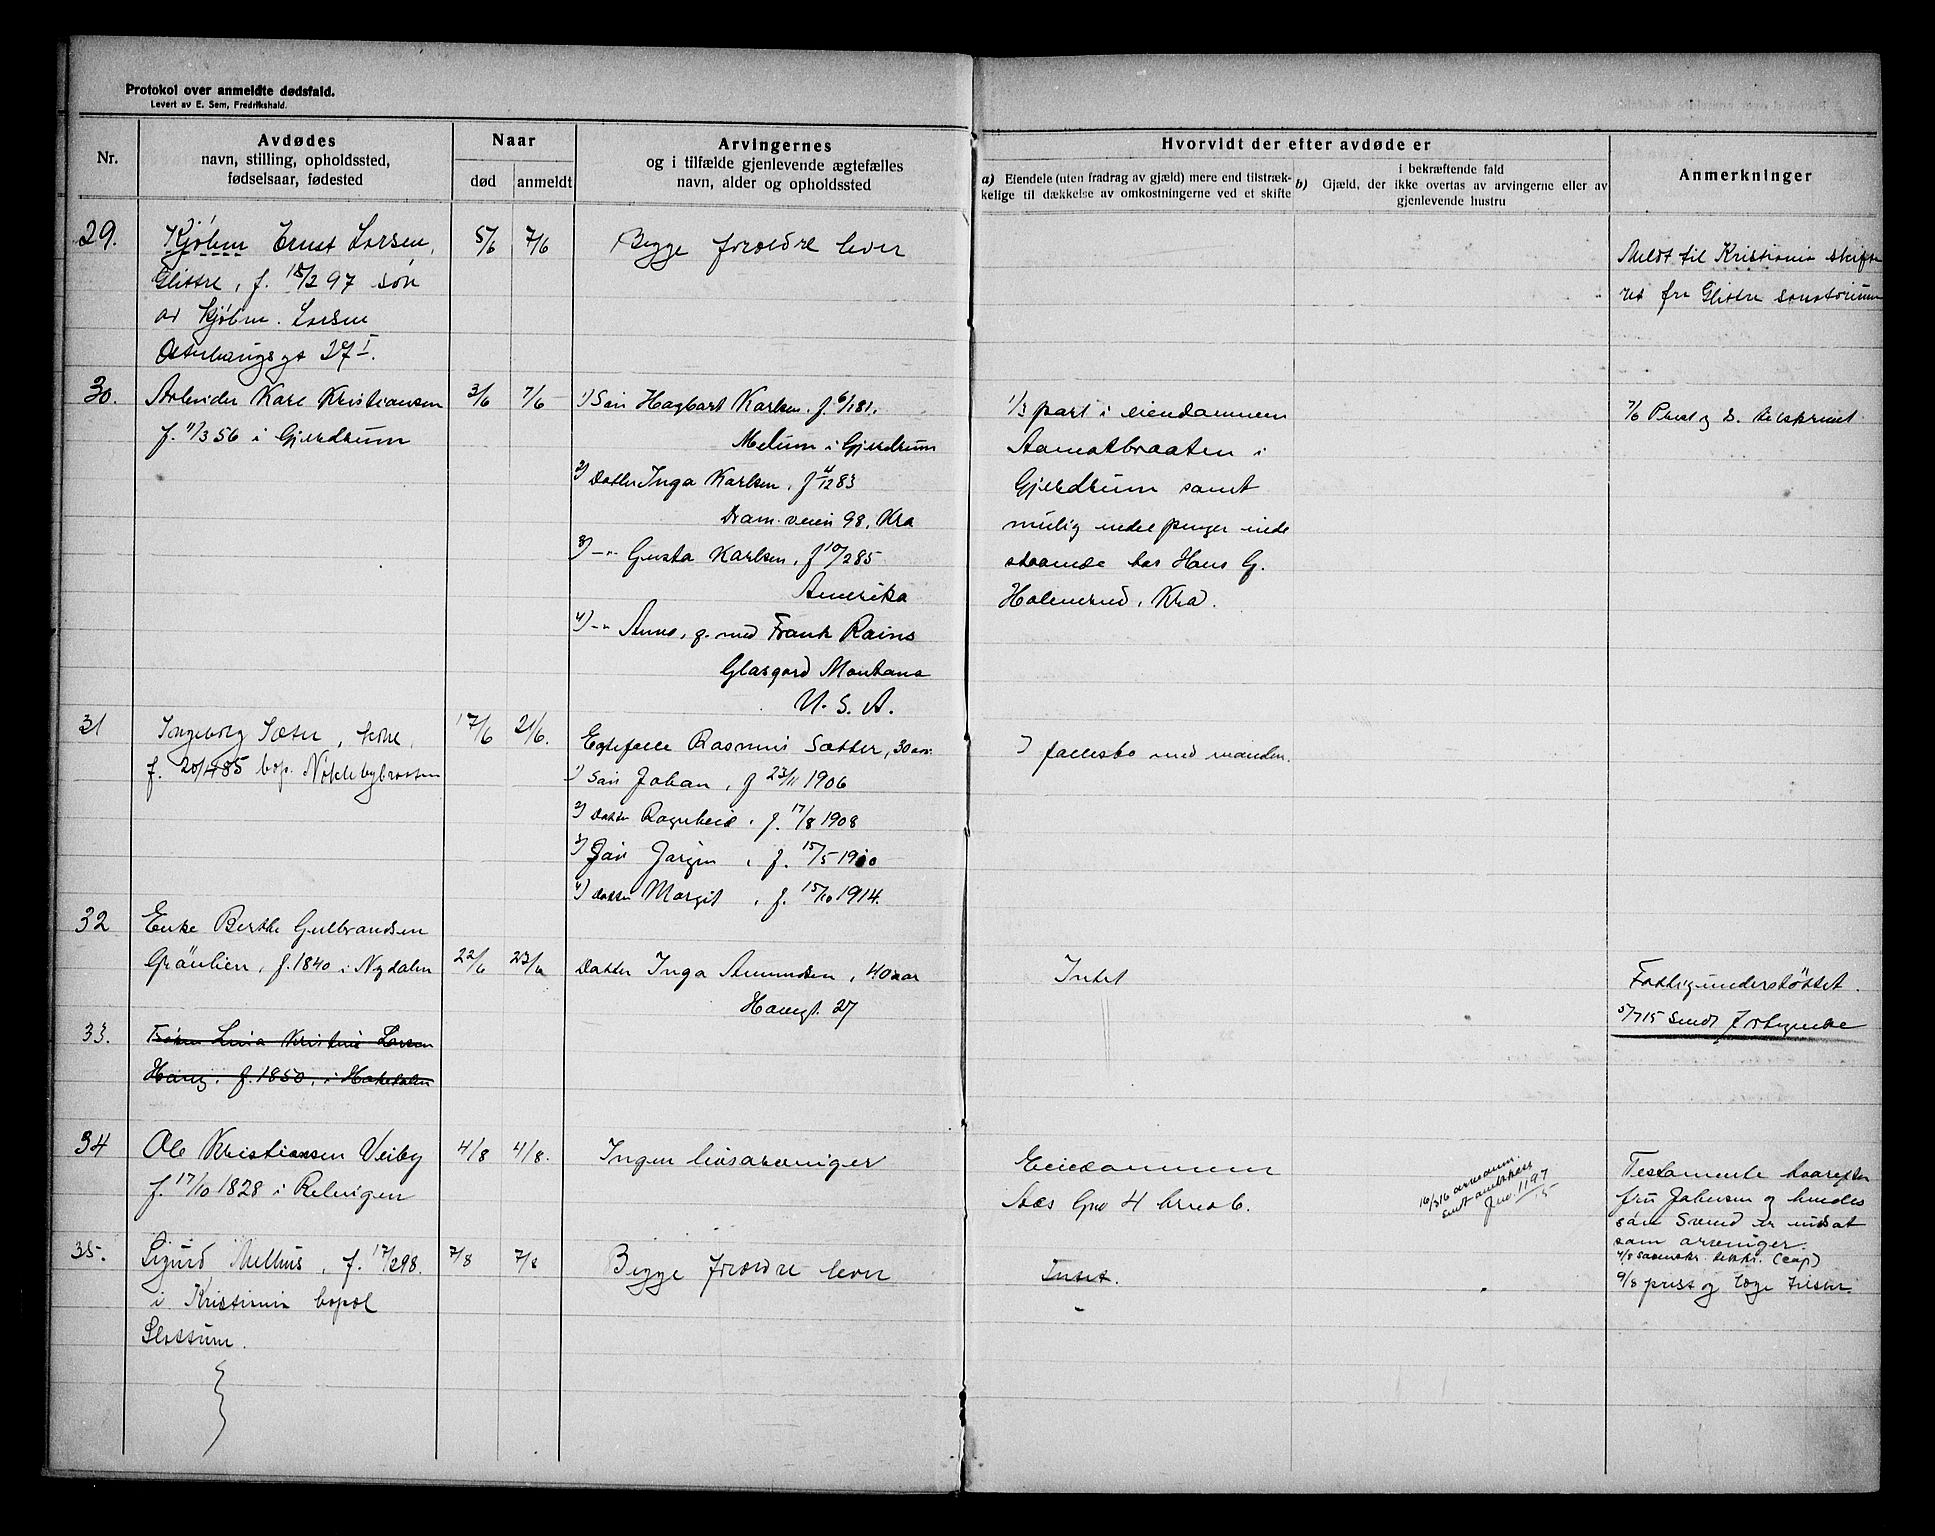 Protokol over anmeldte dødsfald.
Levert av E. Sem, Fredrikshald.
Nr.
Avdødes
navn, stilling, opholdssted,
fødselsaar, fødested
Naar
død
anmeldt
Arvingernes
og i tilfælde gjenlevende ægtefælles
navn, alder og opholdssted
Hvorvidt der efter avdøde er
a) Eiendele (uten fradrag av gjæld) mere end tilstræk-
kelige til dækkelse av omkostningerne ved et skifte
i bekræftende fald
b) Gjæld, der ikke overtas av arvingerne eller av
gjenlevende hustru
Anmerkninger
29.
Kjøbm Ernst Larsen,
Glittre, f. 18/2 97 søn
av Kjøbm. Larsen
Osterhausgs gt 27 I.
5/6
7/6
Begge forældre lever
Meldt til Kristiania skifte
ret fra Glittre sanatorium
30.
Arbeider Karl Kristiansen
f. 11/3 56 i Gjerdrum
3/6
7/6
1) Søn Hagbart Karlsen. f 6/1 81.
Melum i Gjerdrum
2) Datter Inga Karlsen, f 4/12 83
Dram. veien 98, Kra
3) -"- Gusta Karlsen, f 10/2 85
Amerika
4) -"- Anna, g. med Frank Rains
Glasgord Montana
U. S. A.
1/3 part i eiendommen
Aamotbraaten i
Gjerdrum samt
mulig endel penger inde
staaende hos Hans G.
Holmerud, Kra.
7/6 Prest og D. tilskrevet
31
Ingeborg Sæter, kone,
f. 20/4 85 bop. Nøklebybraaten
17/6
21/6.
Egtefælle Rasmus Sætter, 30 aar
1) Søn Johan, f 23/11 1906
2) Datter Ragnheid, f. 17/8 1908
3) Søn Jørgen, f. 15/5 1910
4) Datter Margit, f. 15/10 1914.
I fællesbo med manden.
32
Enke Berthe Gulbrandsen
Grönlien, f. 1840 i Nydalen
22/6
23/6
Datter Inga Amundsen, 40 aar
Haugt. 27
Intet
Fattigunderstöttet.
5/7 15 sendt
33.
Lina Kristine Larsen
Haug, f. 1850, i Hakedalen
34
Ole Kristiansen Veiby
f. 17/10 1828 i Relingen
4/8
4/8.
Ingen livsarvinger
Eiendommen
Aas Gno 4 brno 6.
16/3 16
Jno. 1197/15
Testamente hvorefter
fru Johnsen og hendes
søn Svend er indsat
som arvinger.
4/8
35.
Sigurd Melhus, f. 17/2 98.
i Kristiania bopæl
Slattum.
7/8
7/8
Begge forældre lever
Intet.
9/8 prest og læge tilskr.